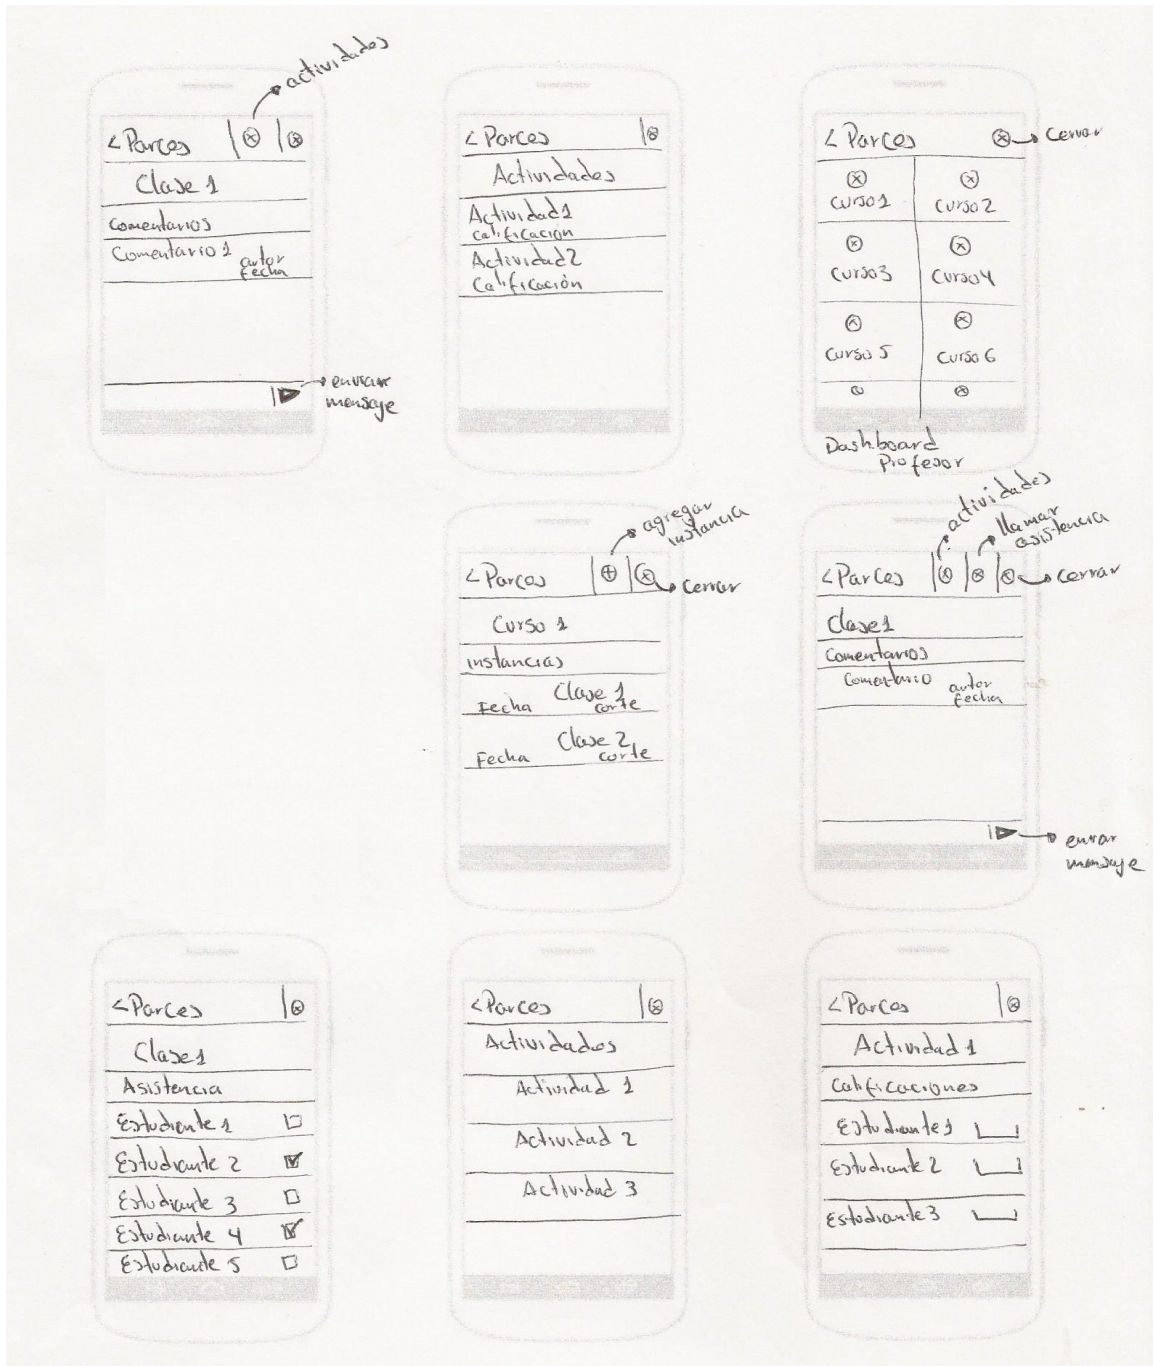 actividades
< Parces
Clase 1
Comentarios
Comentario 1 autor
fecha
enviar
mensaje
< Parces
Actividades
Actividad 1
Calificacion
Actividad 2
Calificación
< Parces
cerrar
curso 1
curso 2
curso 3
curso 4
curso 5
curso 6
Dashboard
Profesor
agregar
instancia
< Parces
cerrar
Curso 1
instancias
Clase 1
Fecha corte
Clase 2
Fecha corte
actividades
llamar
asistencia
< Parces
cerrar
Clase 1
Comentarios
Comentario autor
fecha
enviar
mensaje
< Parces
Clase 1
Asistencia
Estudiante 1
Estudiante 2
Estudiante 3
Estudiante 4
Estudiante 5
< Parces
Actividades
Actividad 1
Actividad 2
Actividad 3
< Parces
Actividad 1
Calificaciones
Estudiante 1
Estudiante 2
Estudiante 3